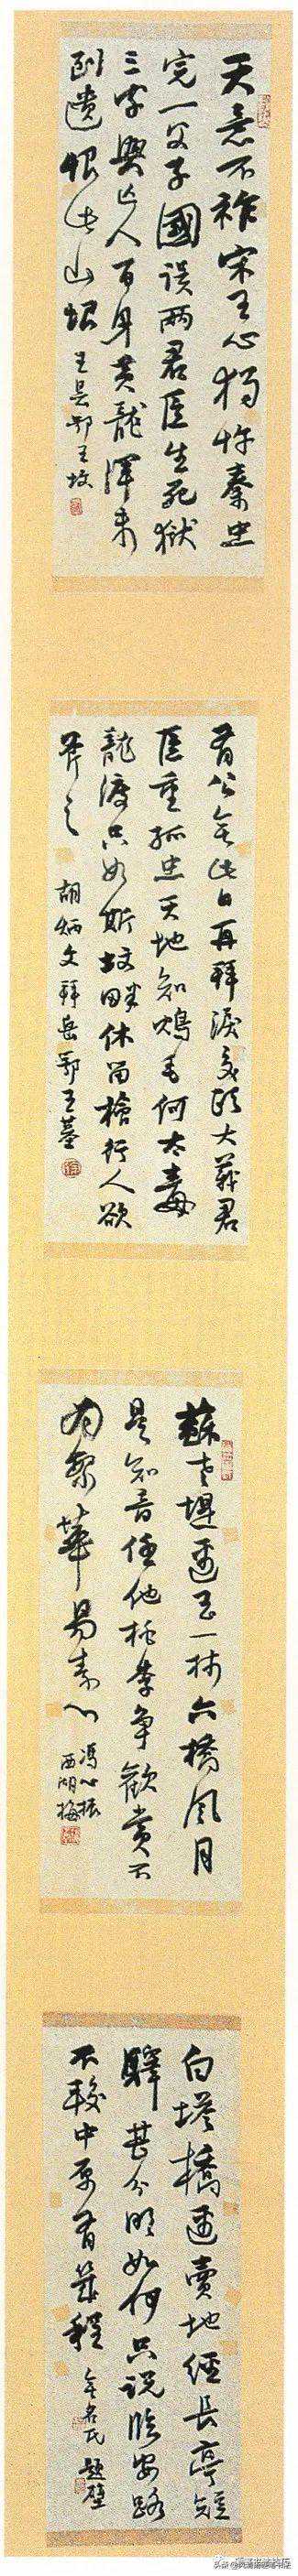 天意不祚宋王心獨忤秦忠
完一父子國誤兩君臣生死獄
三字興亡人百身黃龍渾未
到遺恨此山垠
王昱鄂王坟
有公無此日再拜淚交頤大義君
臣重孤忠天地知鴆毛何太毒
龍渡只如斯坟畔休留檜行人欲
斧之
胡炳文拜岳鄂王墓
蘇老堤邊玉一林六橋風月
是知音任他桃李爭歡賞不
為繁華易素心
馮子振
西湖梅
白塔橋邊賣地經長亭短
驛甚分明如何只說臨安路
不較中原有幾程
無名氏題壁
头条